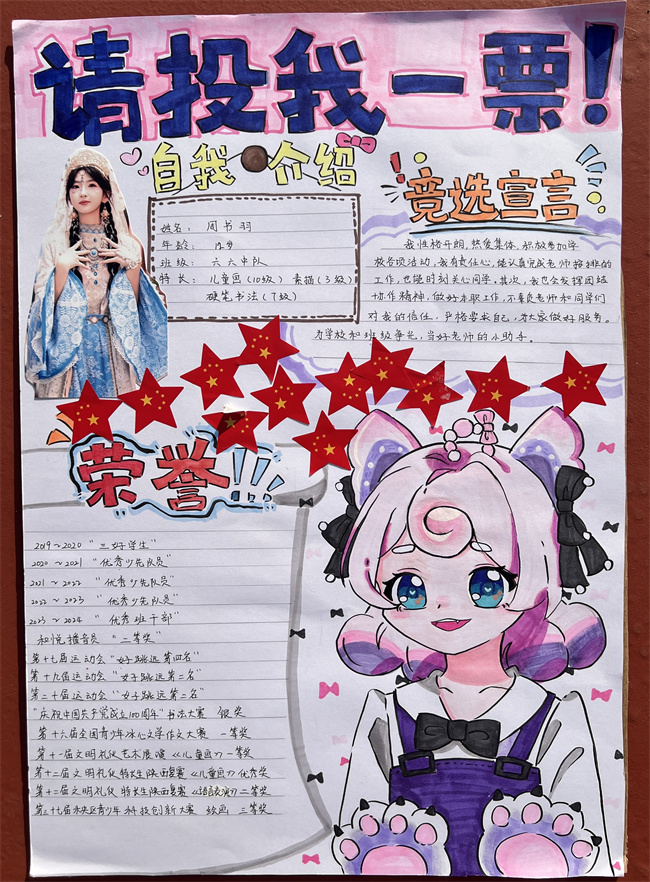 请投我一票！
自我介绍
姓名：周书羽
年龄：12岁
班级：六六中队
特长：儿童画（10级） 素描（3级）
硬笔书法（7级）
竞选宣言
我性格开朗，热爱集体，积极参加学
校各项活动，我有责任心，能认真完成老师安排的
工作，也能时刻关心同学。其次，我也会发挥团结
协作精神，做好本职工作，不辜负老师和同学们
对我的信任，严格要求自己，为大家做好服务。
为学校和班级争光，当好老师的小助手。
荣誉!!!
2019～2020 “三好学生”
2020～2021 “优秀少先队员”
2021～2022 “优秀少先队员”
2022～2023 “优秀少先队员”
2023～2024 “优秀班干部”
和悦播音员 “二等奖”
第十七届运动会“女子跳远第四名”
第十九届运动会“女子跳远第二名”
第二十届运动会“女子跳远第二名”
“庆祝中国共产党成立100周年”书法大赛 银奖
第十六届全国青少年冰心文学作文大赛 一等奖
第十一届文明礼仪艺术展演《儿童画》一等奖
第十二届文明礼仪特长生陕西复赛《儿童画》优秀奖
第十二届文明礼仪特长生陕西复赛《语言表演》二等奖
第三十七届未央区青少年科技创新大赛 绘画 三等奖